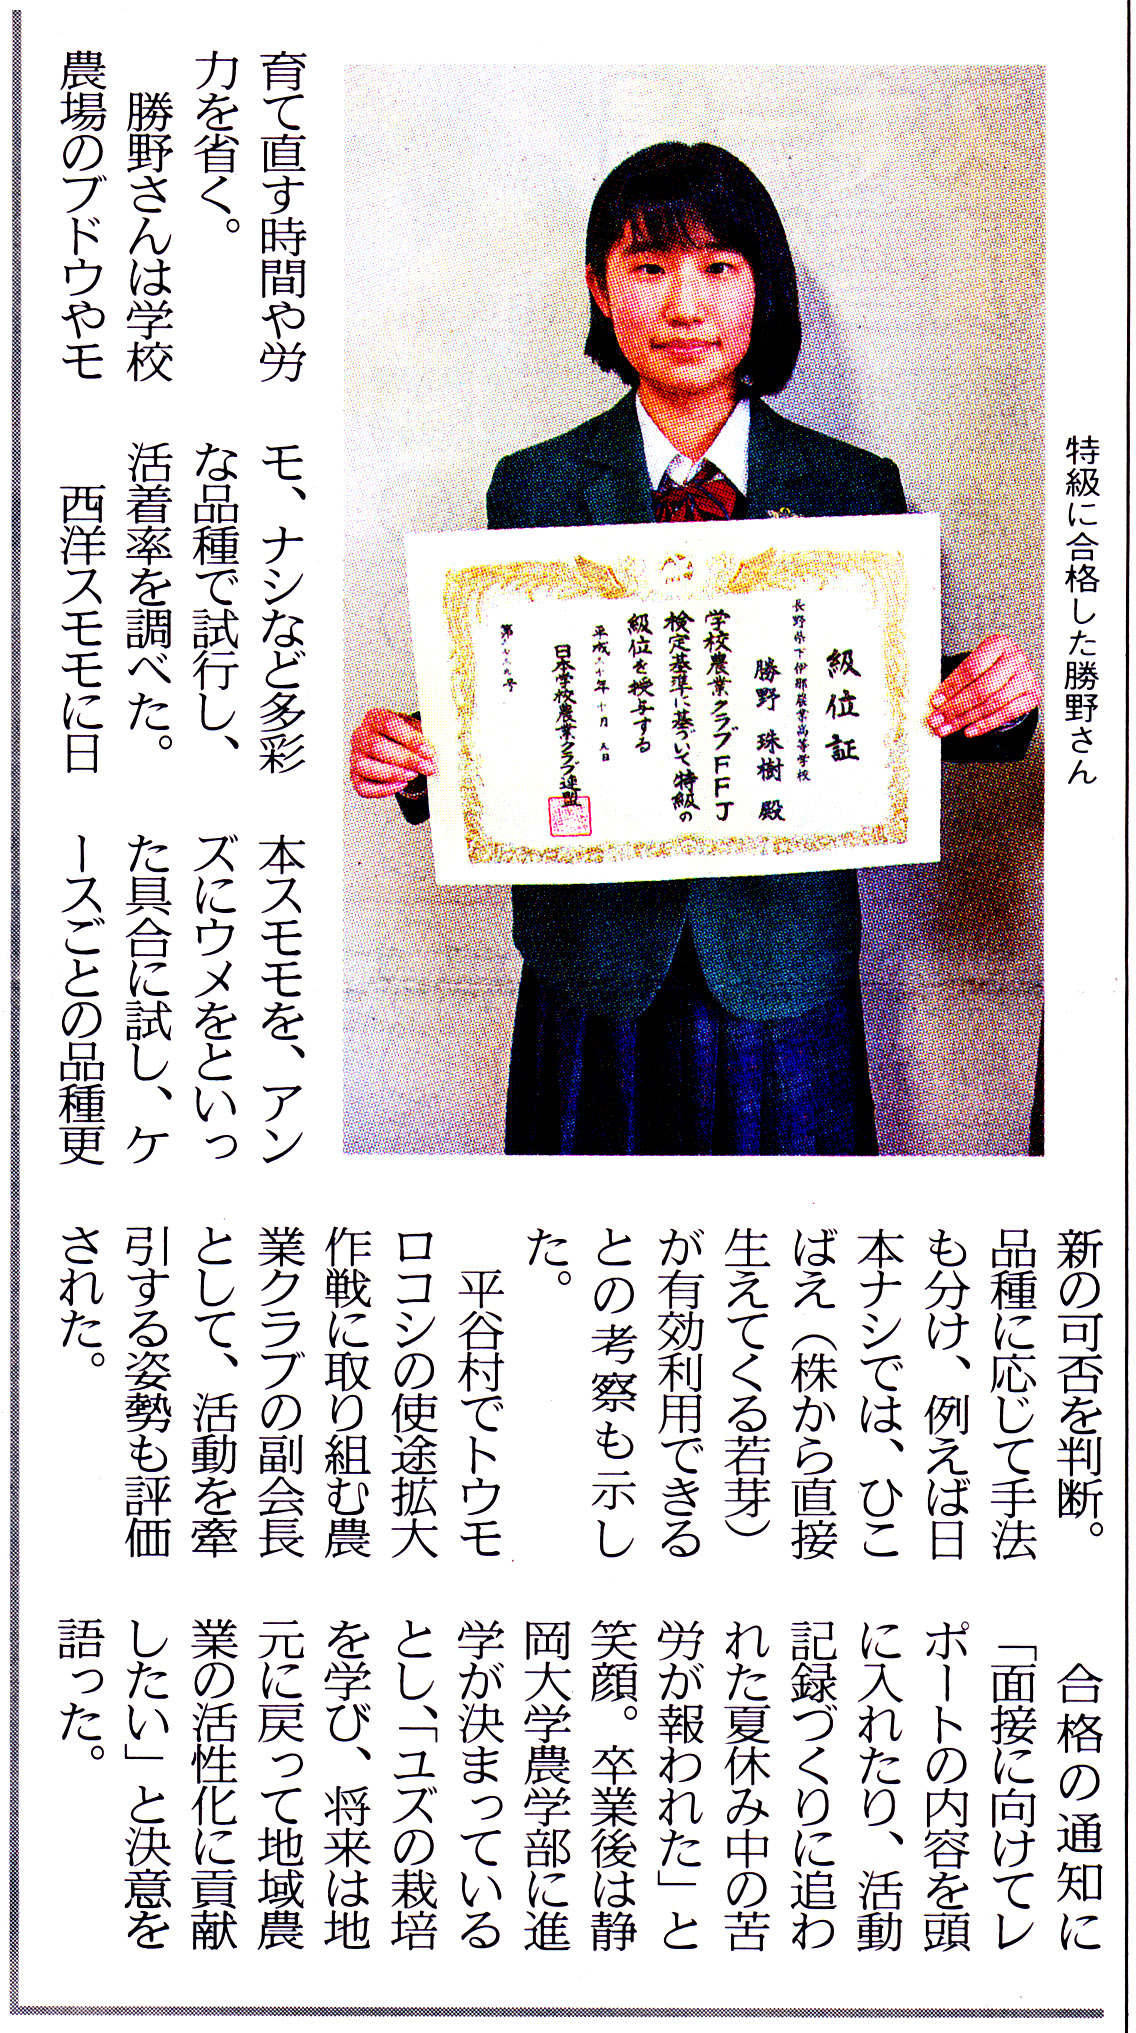 特級に合格した勝野さん
級位証
長野県下伊那農業高等学校
勝野 珠樹 殿
学校農業クラブFFJ
検定基準に基づいて特級の
級位を授与する
平成三十年十月 九日
日本学校農業クラブ連盟
育て直す時間や労
力を省く。
勝野さんは学校
農場のブドウやモ
モ、ナシなど多彩
な品種で試行し、
活着率を調べた。
西洋スモモに日
本スモモを、アン
ズにウメをといっ
た具合に試し、ケ
ースごとの品種更
新の可否を判断。
品種に応じて手法
も分け、例えば日
本ナシでは、ひこ
ばえ（株から直接
生えてくる若芽）
が有効利用できる
との考察も示し
た。
平谷村でトウモ
ロコシの使途拡大
作戦に取り組む農
業クラブの副会長
として、活動を牽
引する姿勢も評価
された。
合格の通知に
「面接に向けてレ
ポートの内容を頭
に入れたり、活動
記録づくりに追わ
れた夏休み中の苦
労が報われた」と
笑顔。卒業後は静
岡大学農学部に進
学が決まっている
とし、「ユズの栽培
を学び、将来は地
元に戻って地域農
業の活性化に貢献
したい」と決意を
語った。